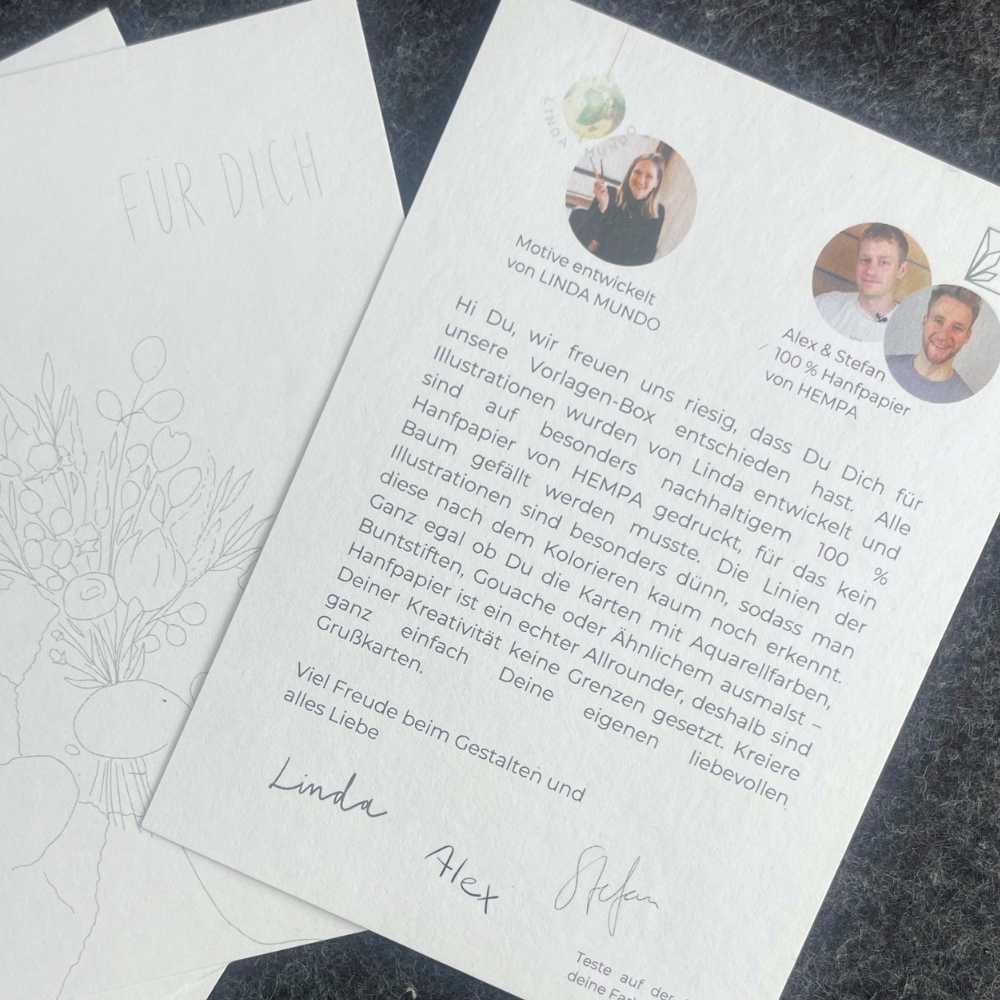 FÜR DICH
LINDA MUNDO
Motive entwickelt
von LINDA MUNDO
Alex & Stefan
100 % Hanfpapier
von HEMPA
Hi Du, wir freuen uns riesig, dass Du Dich für
unsere Vorlagen-Box entschieden hast. Alle
Illustrationen wurden von Linda entwickelt und
sind auf besonders nachhaltigem 100 %
Hanfpapier von HEMPA gedruckt, für das kein
Baum gefällt werden musste. Die Linien der
Illustrationen sind besonders dünn, sodass man
diese nach dem Kolorieren kaum noch erkennt.
Ganz egal ob Du die Karten mit Aquarellfarben,
Buntstiften, Gouache oder Ähnlichem ausmalst –
Hanfpapier ist ein echter Allrounder, deshalb sind
Deiner Kreativität keine Grenzen gesetzt. Kreiere
ganz einfach Deine eigenen liebevollen
Grußkarten.
Viel Freude beim Gestalten und
alles Liebe
Linda
Alex
Stefan
Teste auf der
deine